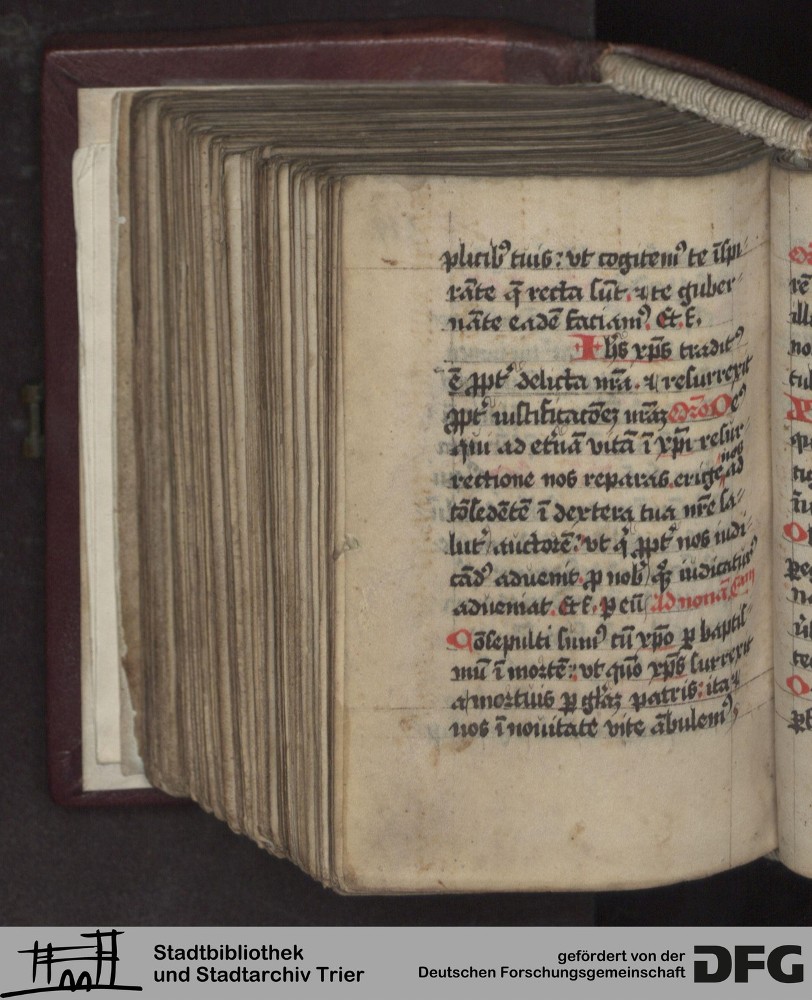 plicib⁹ tuis: vt cogitem⁹ te īspi-
rāte q̄ recta sūt. ⁊ te guber-
nāte eadē faciam⁹. Et. f.
Ihs xp̄s tradit⁹
ē ꝓpt᷑ delicta nr̄a. ⁊ resurrexit
ꝓpt᷑ iustificatōeꝫ nr̄aꝫ Oro De⁹
qui ad et̄nā vitā ī xp̄i resur-
rectione nos reparas. erige nos ad
cōsedētē ī dextera tua nr̄e sa-
lut᷑ auctorē: vt q̇ ꝓpt᷑ nos iudi-
cād⁹ aduenit. ꝓ nob᷑ qꝫ iudicatur⁹
adueniat. Et f. ꝑ eū Ad nonā. Cam
Cōsepulti sum⁹ cū xp̄o ꝑ baptis-
mū ī mortē: vt quō xp̄s surrexit
a mortuis ꝑ gl̄aꝫ patris: ita ⁊
nos ī nouitate vite ābulem⁹.
Stadtbibliothek
und Stadtarchiv Trier
gefördert von der
Deutschen Forschungsgemeinschaft
DFG